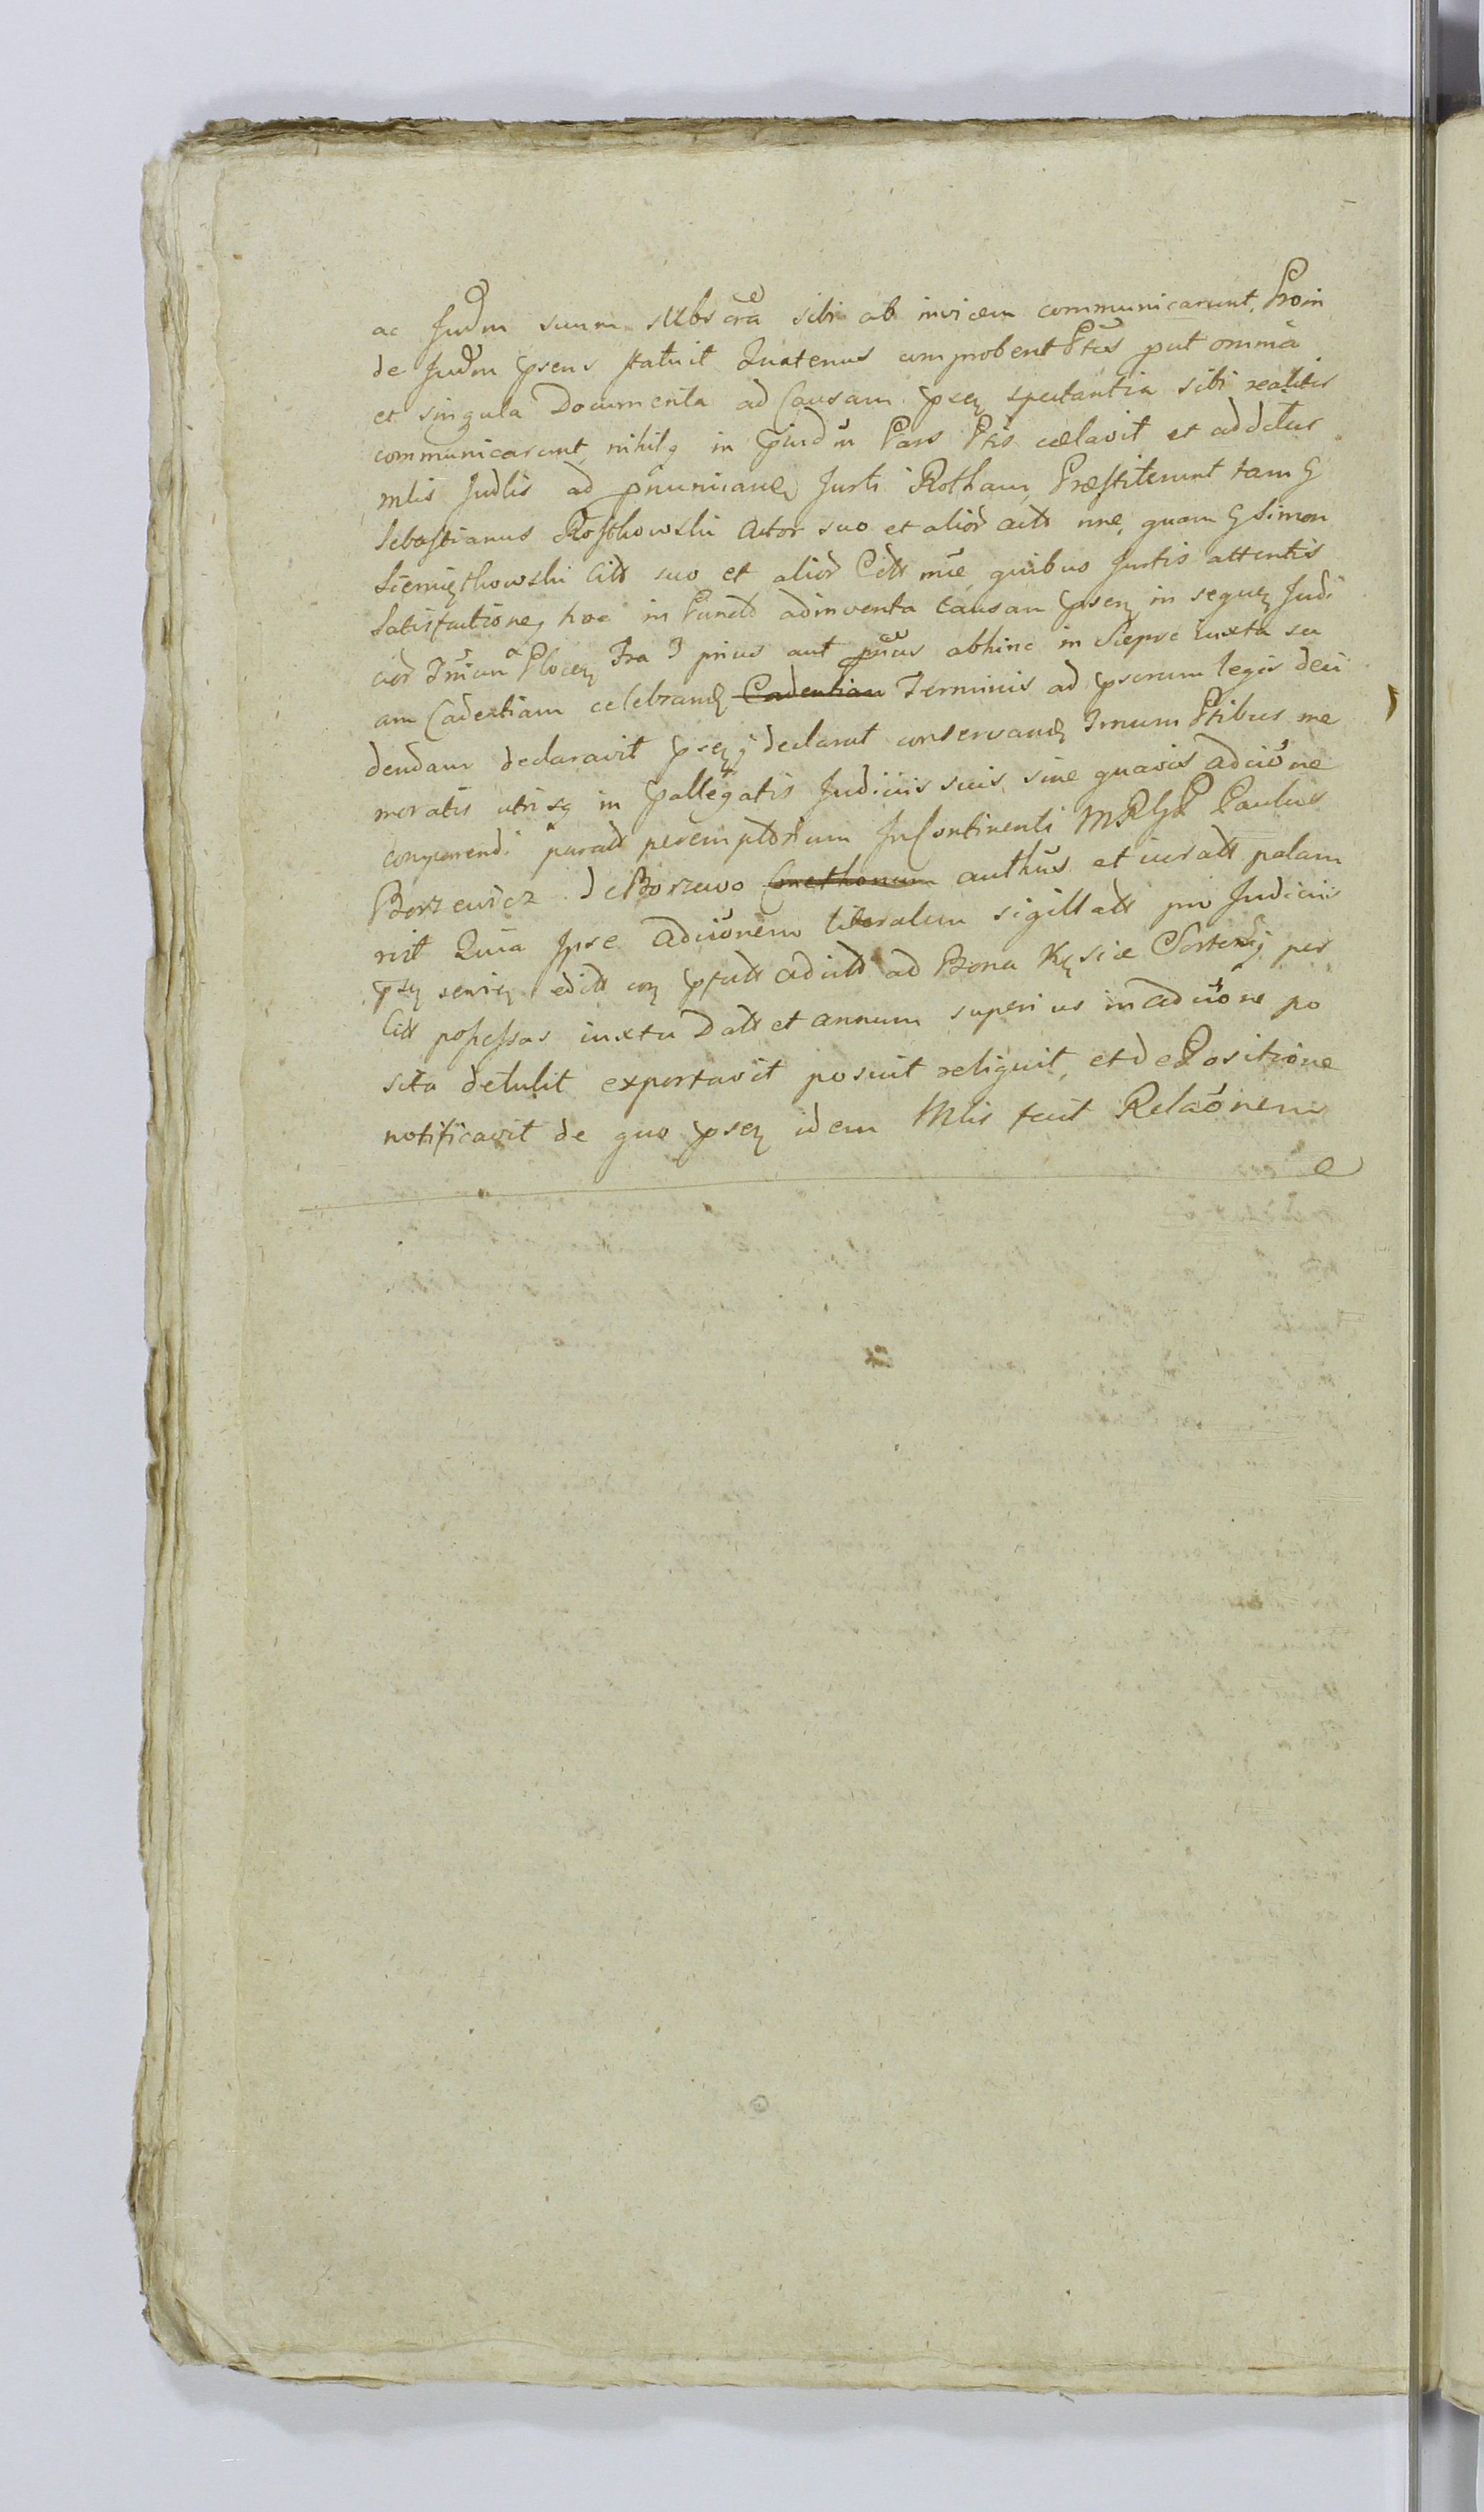 ac Judm suum subscra sibi ab invicem communicarunt, Proin
de Judm psens statuit Quatenus comprobent Ptes put omnia
et singula Documenta ad Causam psen spectantia sibi realiter
communicarunt, nihilq in pjudm Pars Ptis celavit et addetur
Mlis Judlis ad pnunciand Jurti Rotham, Præstiterunt tam G
Sebastianus Rostkowski Actor suo et alior actt nne, quam G Simon
Siemiętkowski Citt suo et alior Citt nne quibus Jurtis attentis
Satisfactioneq hoc in Puncto adinventa causam psen in sequen Judi
cior Trium Plocen Fra 3 prius aut pncus abhinc in Siepre iuxta su
am Cadentiam celebrand Cadentiam Terminis ad pscrum legis deci
dendam declaravit psenq declarat conservand Trnum Ptibus me
moratis utrisq in pallegatis Judiciis suis, sine quavis adcione
comparendi paratt peremptorium InContinenti MRGP Paulus
Borzewicz de Borzewo authus et iuratt palam
rvit Quia Ipse adcionem literalem sigillatt pro Judiciis
psn servien editt con pfatt adcitt ad Bona Kęsice Sortesq per
Citt possessas iuxta Datt et annum superius in adcione po
sita detulit exportavit posuit reliquit, et de Positione
notificavit de quo psen idem Mlis fecit Relaonem